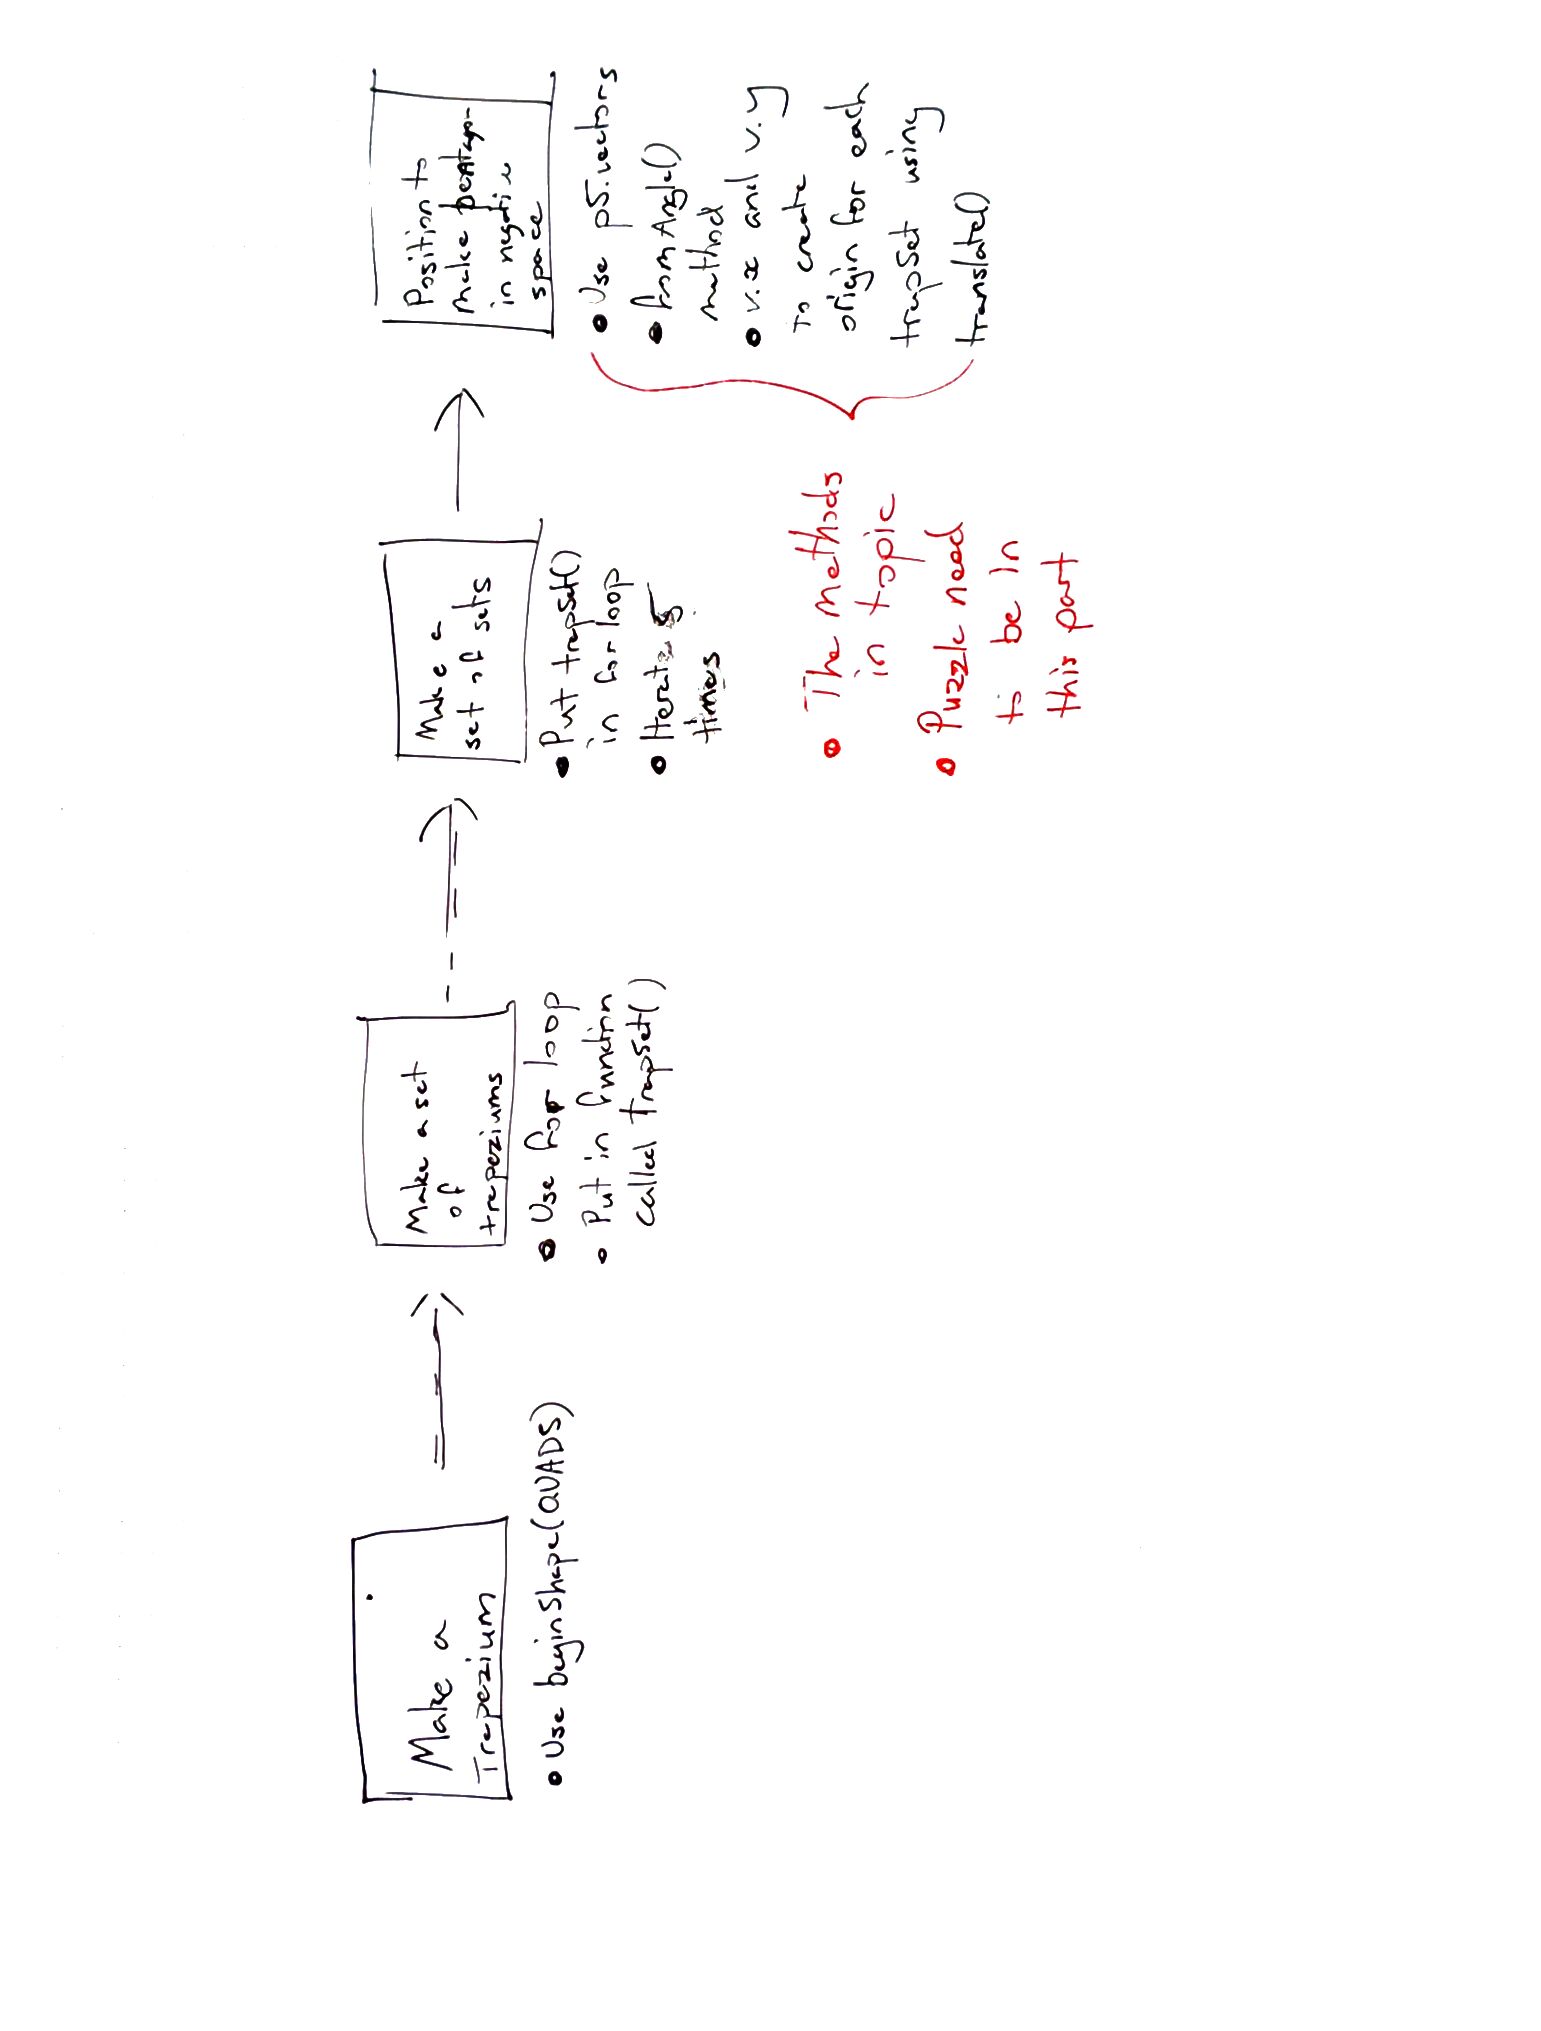 Make a
Trapezium
• Use beginShape(QUADS)
Make a set
of
trapeziums
• Use for loop
• Put in function
called trapSet()
Make a
set of sets
• Put trapSet()
in for loop
• Iterate 5
times
Position to
make pentagon
in negative
space
• Use p5.vectors
• fromAngle()
method
• v.x and v.y
to create
origin for each
trapSet using
translate()
• The methods
in topic
• Puzzle need
to be in
this part